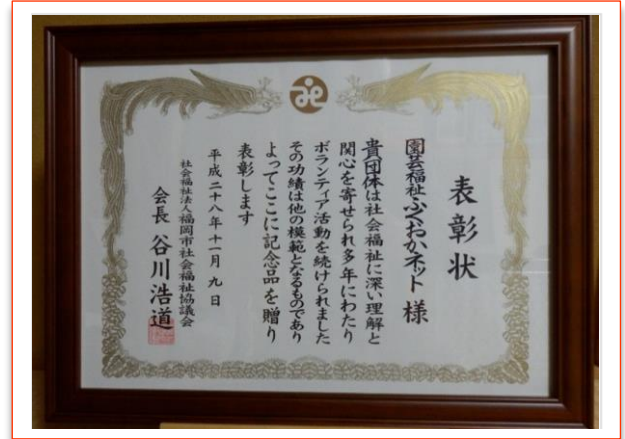 表彰状
園芸福祉ふくおかネット 様
貴団体は社会福祉に深い理解と
関心を寄せられ多年にわたり
ボランティア活動を続けられました
その功績は他の模範となるものであり
よってここに記念品を贈り
表彰します
平成二十八年十一月 九 日
社会福祉法人福岡市社会福祉協議会
会長 谷川浩道